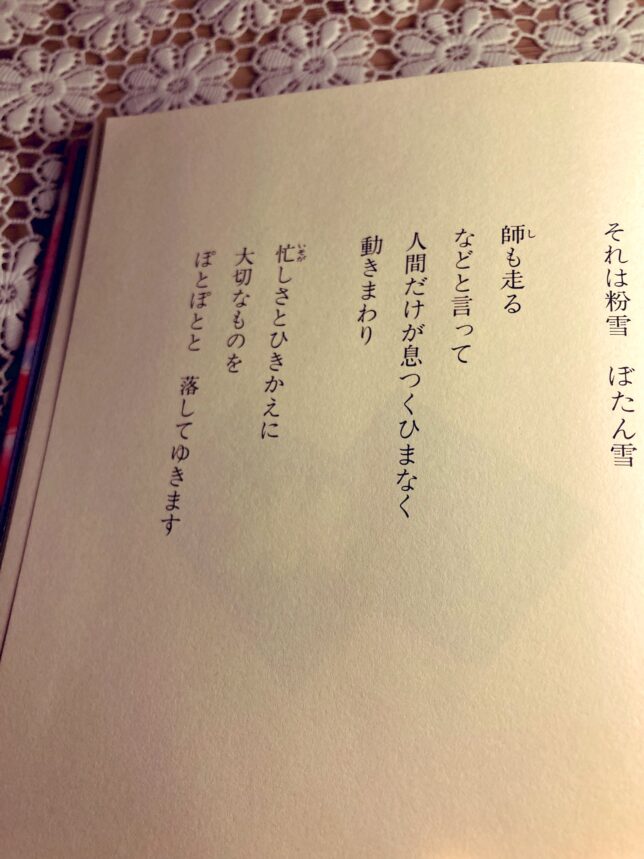 それは粉雪　ぼたん雪
師も走る
などと言って
人間だけが息つくひまなく
動きまわり
忙しさとひきかえに
大切なものを
ぽとぽとと　落してゆきます